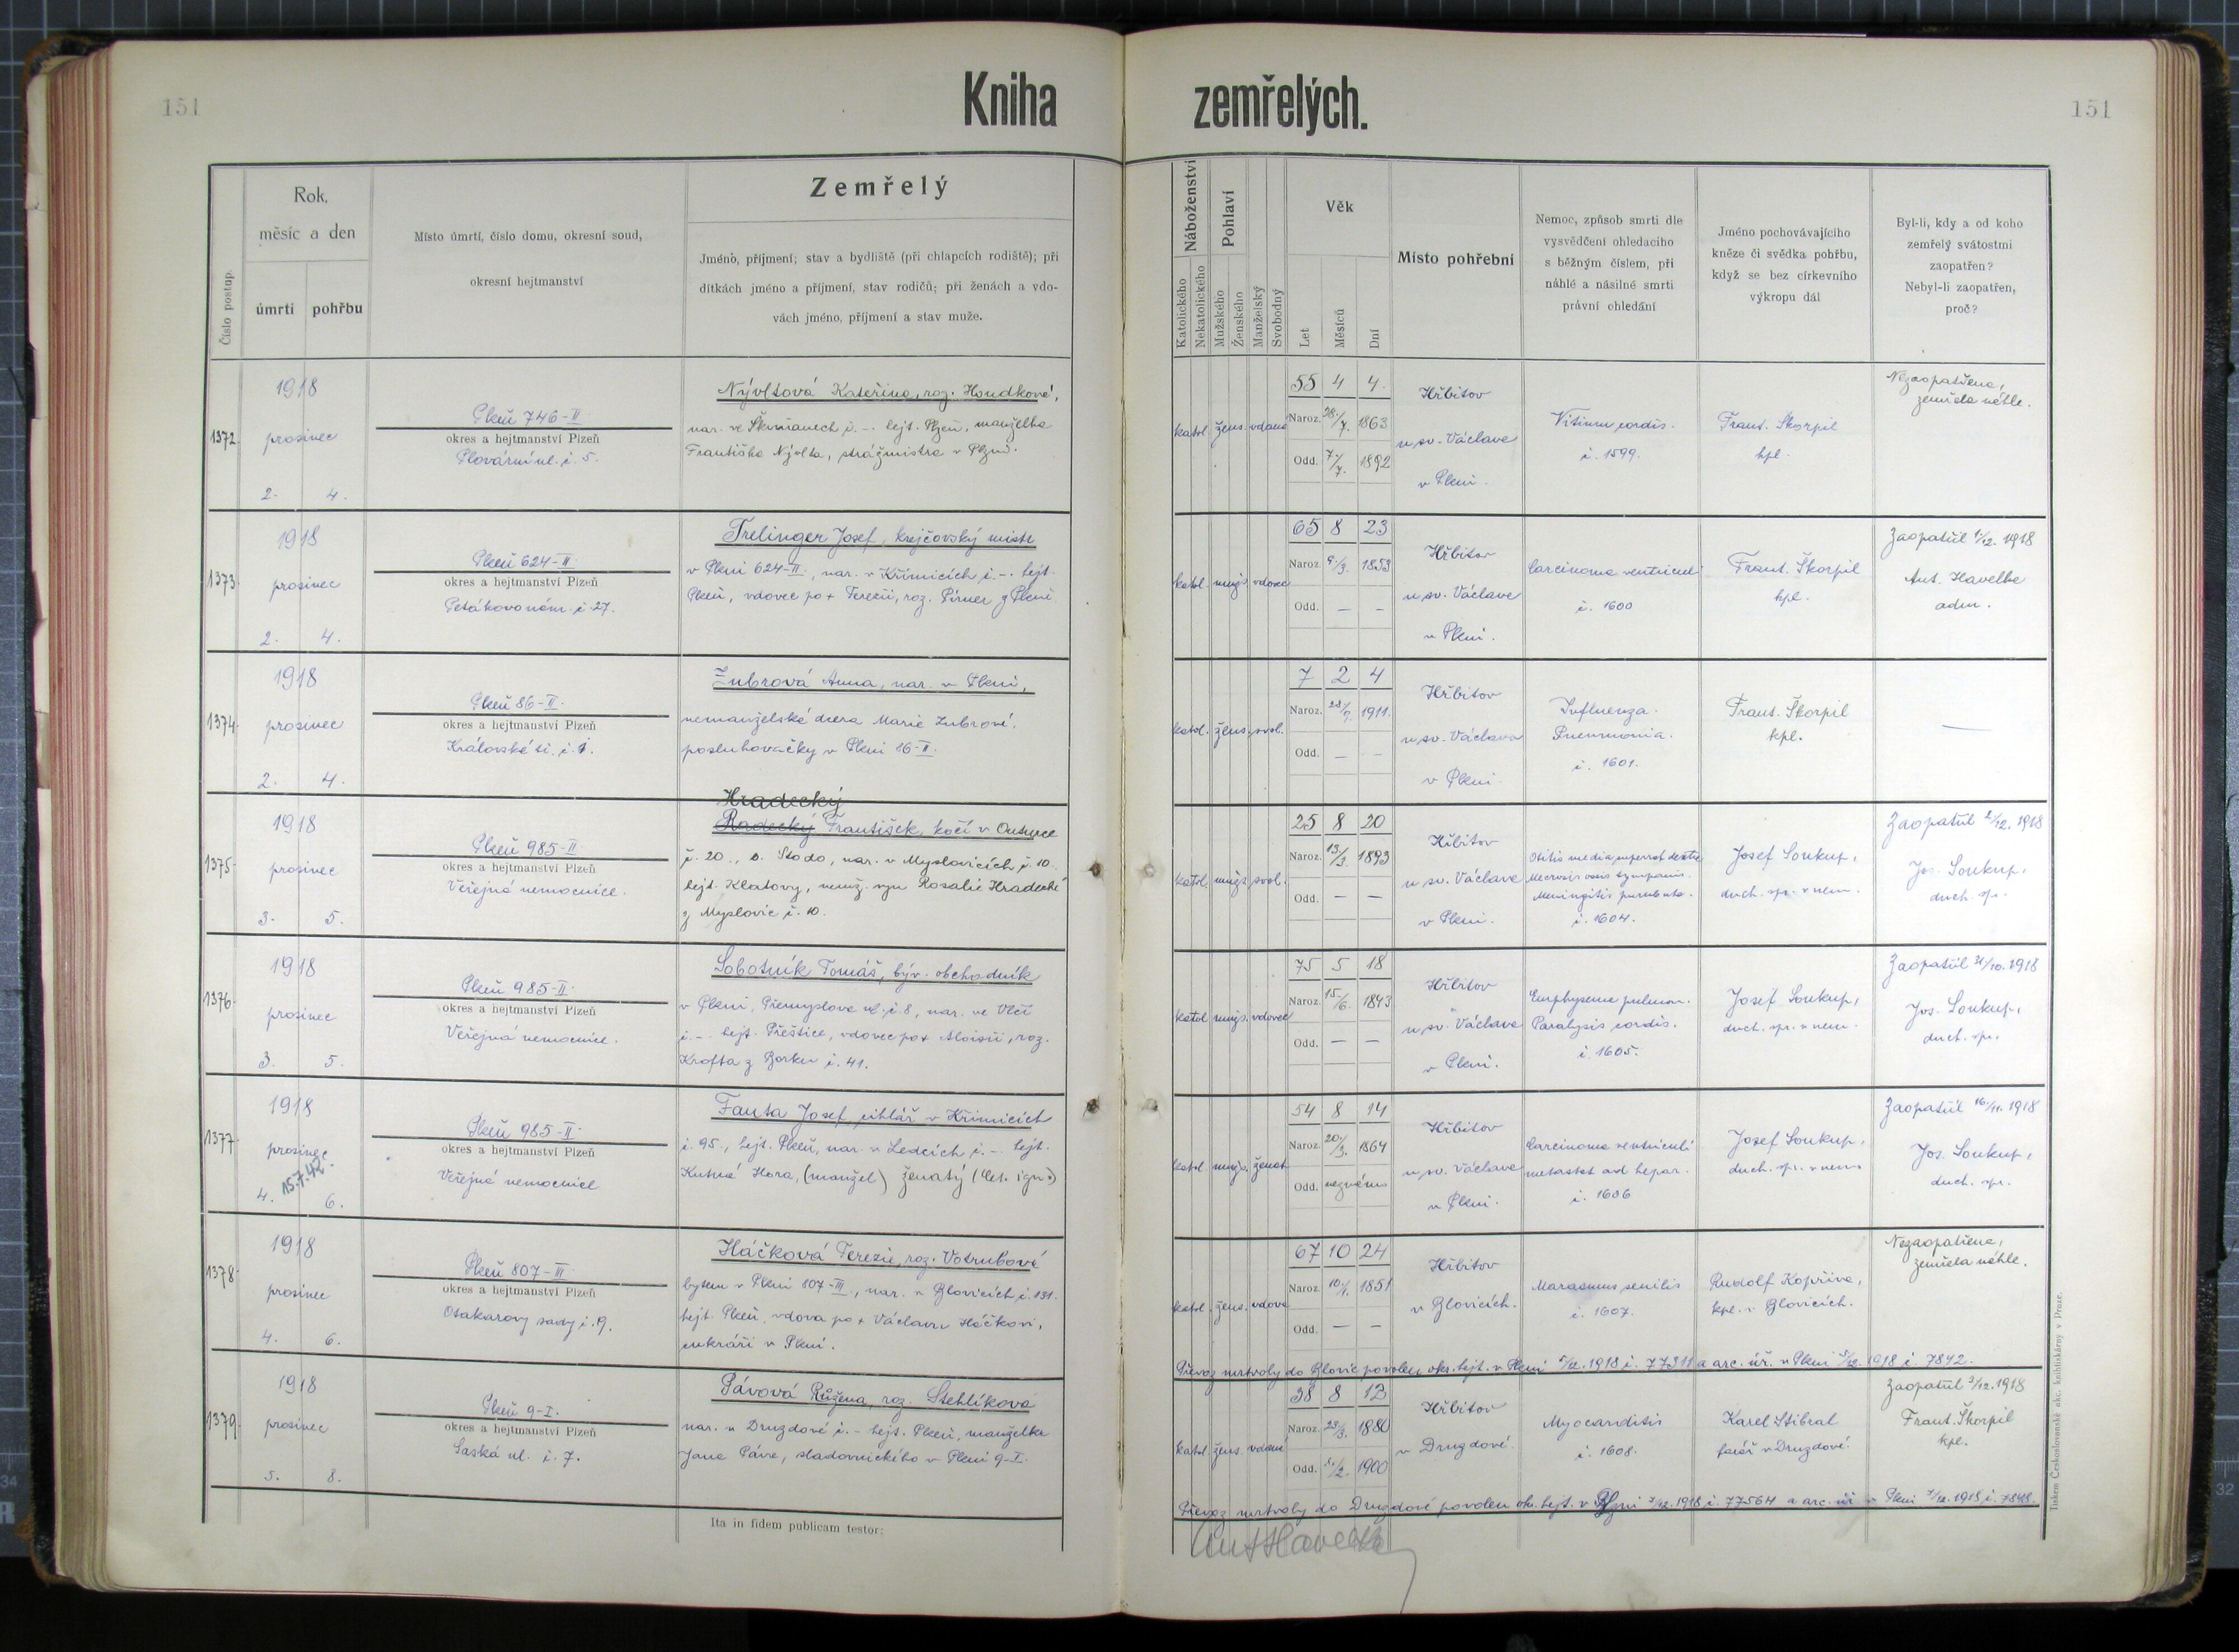 151
Kniha
zemřelých.
151
Číslo postup.
Rok,
měsíc a den
úmrtí
pohřbu
Místo úmrtí, číslo domu, okresní soud,
okresní hejtmanství
Zemřelý
Jméno, příjmení; stav a bydliště (při chlapcích rodiště); při
dítkách jméno a příjmení, stav rodičů; při ženách a vdo-
vách jméno, příjmení a stav muže.
Náboženství
Katolického
Nekatolického
Pohlaví
Mužského
Ženského
Manželský
Svobodný
Věk
Let
Měsíců
Dní
Místo pohřební
Nemoc, způsob smrti dle
vysvědčení ohledacího
s běžným číslem, při
náhlé a násilné smrti
právní ohledání
Jméno pochovávajícího
kněze či svědka pohřbu,
když se bez církevního
výkropu dál
Byl-li, kdy a od koho
zemřelý svátostmi
zaopatřen?
Nebyl-li zaopatřen,
proč?
1372.
1918
prosinec
2. 4.
Plzeň 746-II.
okres a hejtmanství Plzeň
Plovární ul. č. 5.
Nývltová Kateřina, roz. Houdková,
nar. ve Skvrňanech č. -. hejt. Plzeň, manželka
Františka Nývlta, strážmistra v Plzni.
katol. žens. vdaná
55 4 4.
Naroz. 28./7. 1863
Odd. 7./7. 1892
Hřbitov
u sv. Václava
v Plzni.
Vitium cordis.
č. 1599.
Frant. Škorpil
kpl.
Nezaopatřena,
zemřela náhle.
1373.
1918
prosinec
2. 4.
Plzeň 624-II.
okres a hejtmanství Plzeň
Petákovo nám. č. 27.
Trelinger Josef, krejčovský mistr
v Plzni 624-II., nar. v Křimicích č. -. hejt.
Plzeň, vdovec po + Terezii, roz. Pirner z Plzně
katol. mužs. vdovec
65 8 23
Naroz. 9/3. 1853
Odd. — —
Hřbitov
u sv. Václava
v Plzni.
Carcinoma ventriculi
č. 1600
Frant. Škorpil
kpl.
Zaopatřil 1/12. 1918
Ant. Havelka
adm.
1374.
1918
prosinec
2. 4.
Plzeň 86-II.
okres a hejtmanství Plzeň
Královská tř. č. 1.
Zubrová Anna, nar. v Plzni,
nemanželská dcera Marie Zubrové,
posluhovačky v Plzni 86-II.
katol. žens. svob.
7 2 4
Naroz. 28/9. 1911.
Odd. — —
Hřbitov
u sv. Václava
v Plzni.
Influenza.
Pneumonia.
č. 1601.
Frant. Škorpil
kpl.
—
1375.
1918
prosinec
3. 5.
Plzeň 985-II
okres a hejtmanství Plzeň
Veřejná nemocnice.
Hradecký
Radecký František, kočí v
č. 20., s. Stodo, nar. v Myslovicích č. 10.
hejt. Klatovy, nemž. syn Rosalie Hradecké
z Myslovic č. 10.
katol. mužs. svob.
25 8 20
Naroz. 13./3. 1893
Odd. — —
Hřbitov
u sv. Václava
v Plzni.
Otitis media
Necrosis ossis tympani.
Meningitis purulenta.
č. 1604.
Josef Soukup,
duch. spr. v nem.
Zaopatřil 2/12. 1918
Jos. Soukup,
duch. sp.
1376.
1918
prosinec
3. 5.
Plzeň 985-II.
okres a hejtmanství Plzeň
Veřejná nemocnice.
Sobotník Tomáš, býv. obchodník
v Plzni, Přemyslova ul. č. 8, nar. ve Vlčí
č. -. hejt. Přeštice, vdovec po + Aloisii, roz.
Krofta z Borku č. 41.
katol. mužs. vdovec
75 5 18
Naroz. 15./6. 1843
Odd. — —
Hřbitov
u sv. Václava
v Plzni.
Emphysema pulmon.
Paralysis cordis.
č. 1605.
Josef Soukup,
duch. spr. v nem.
Zaopatřil 21/10. 1918
Jos. Soukup,
duch. spr.
1377.
1918
prosinec
15.7.42.
4. 6.
Plzeň 985-II.
okres a hejtmanství Plzeň
Veřejná nemocnice
Fanta Josef, cihlář v Křimicích
č. 95., hejt. Plzeň, nar. v Ledcích č. -. hejt.
Kutná Hora, (manžel) ženatý
katol. mužs. ženat.
54 8 14
Naroz. 20./3. 1864
Odd. neznámo
Hřbitov
u sv. Václava
v Plzni.
Carcinoma ventriculi
metastat ad hepar.
č. 1606
Josef Soukup,
duch. spr. v nem.
Zaopatřil 16./11. 1918
Jos. Soukup,
duch. spr.
1378.
1918
prosinec
4. 6.
Plzeň 807-III.
okres a hejtmanství Plzeň
Otakarovy sady č. 9.
Háčková Terezie, roz. Votrubová
bytem v Plzni 807-III., nar. v Blovicích č. 131.
hejt. Plzeň, vdova po + Václavu Háčkovi,
cukráři v Plzni.
katol. žens. vdova
67 10 24
Naroz. 10./1. 1851
Odd. — —
Hřbitov
v Blovicích.
Marasmus senilis
č. 1607.
Rudolf Kopřiva,
kpl. v Blovicích.
Nezaopatřena,
zemřela náhle.
Převoz mrtvoly do Blovic povolen okr. hejt. v Plzni 5/12. 1918 č. 77311 a arc. úř. v Plzni 5/12. 1918 č. 7842.
1379.
1918
prosinec
5. 8.
Plzeň 9-I.
okres a hejtmanství Plzeň
Saská ul. č. 7.
Pávová Růžena, roz. Stehlíková
nar. v Druzdové č. - hejt. Plzeň, manželka
Jana Páva, sladovnického v Plzni 9-I.
katol. žens. vdaná
38 8 12
Naroz. 23/3. 1880
Odd. 1900
Hřbitov
v Druzdové.
Myocarditis
č. 1608.
Karel Stibral
farář v Druzdové.
Zaopatřil 3/12. 1918
Frant. Škorpil
kpl.
Převoz mrtvoly do Druzdové povolen okr. hejt. v Plzni 7/12. 1918 č. 77564 a arc. úř. v Plzni 7/12. 1918 č. 7848.
Ita in fidem publicam testor:
Ant Havelka
Tiskem Českoslovanské akc. knihtiskárny v Praze.